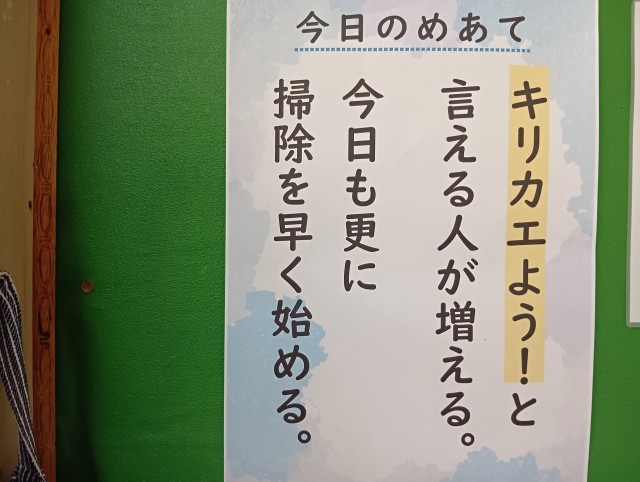 今日のめあて
キリカエよう!と
言える人が増える。
今日も更に
掃除を早く始める。